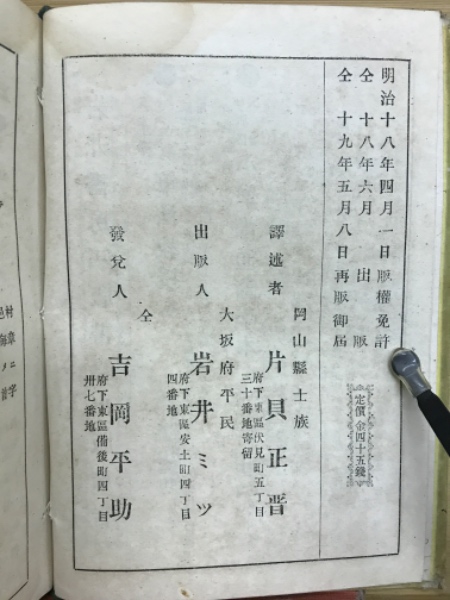 明治十八年四月一日版權免許
仝 十八年六月 出版
仝 十九年五月八日再版御屆
定價金四十五錢
岡山縣士族
譯述者 片貝正晋
府下東區伏見町五丁目
三十番地寄留
大坂府平民
出版人 岩井ミツ
府下東區安土町四丁目
四番地
仝
發兌人 吉岡平助
府下東區備後町四丁目
卅七番地